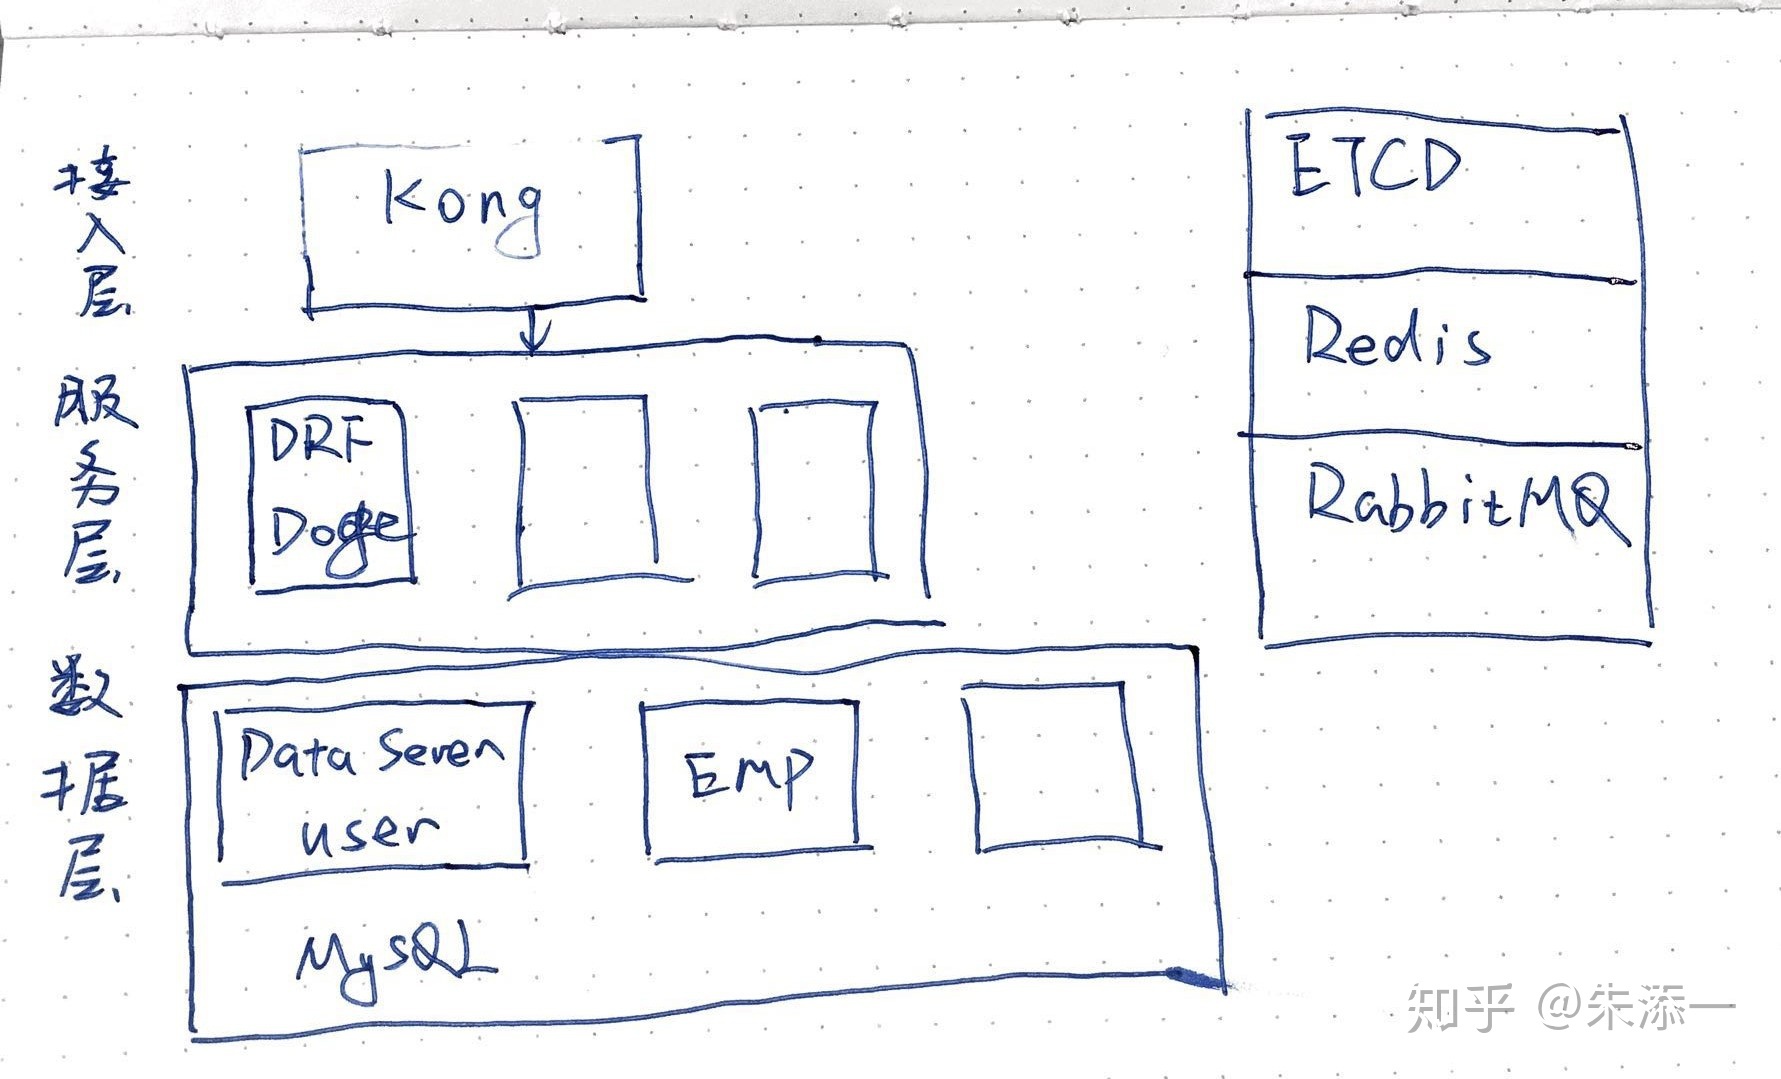 接入层
Kong
服务层
DRF
Doge
数据层
Data Seven
user
EMP
MySQL
ETCD
Redis
RabbitMQ
知乎 @朱添一